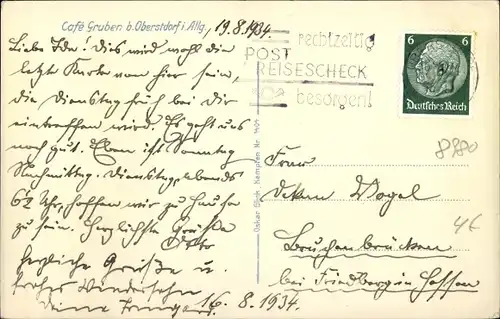 Café Gruben b. Oberstdorf i. Allg.
19.8.1934.
Liebe Ida! Dies wird wohl die
letzte Karte von hier sein,
die Dienstag früh bei Dir
eintreffen wird. Es geht uns
noch gut. Eben ist Sonntag
Nachmittag. Dienstag, abends
6½ Uhr, hoffen wir zu Hause
zu sein. Herzlichste Grüße
Otto
Herzliche Grüße u.
frohes Wiedersehn
Deine
16.8.1934.
rechtzeitig
POST
REISESCHECK
besorgen!
6 6
Deutsches Reich
8880
4€
Frau
Dekan Vogel
Bruchenbrücken
bei Friedberg in Hessen
Oskar Kempten Nr.